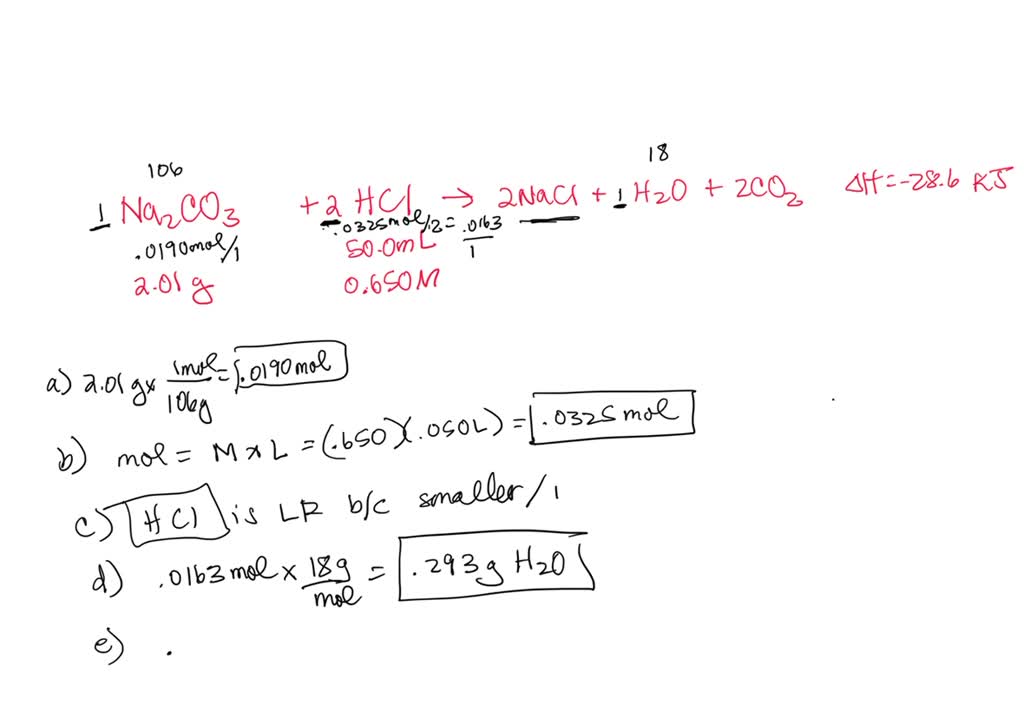 106 18
1 Na₂CO₃ + 2 HCl → 2NaCl + 1 H₂O + 2CO₂ ΔH=-28.6 KJ
.0190mol/1 .0325mol/2 = .0163/1
50.0mL
2.01 g 0.650M
a) 2.01 g x 1mol/106g = .0190 mol
b) mol = M x L = (.650)(.050L) = .0325 mol
c) HCl is LR b/c smaller / 1
d) .0163 mol x 18g/mol = .293g H₂O
e) .